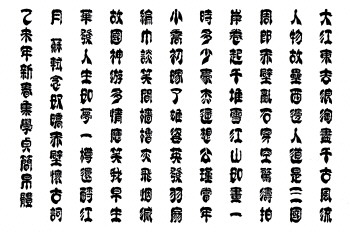 大江東去浪淘盡千古風流
人物故壘西邊人道是三國
周郎赤壁亂石穿空驚濤拍
岸卷起千堆雪江山如畫一
時多少豪杰遙想公瑾當年
小喬初嫁了雄姿英發羽扇
綸巾談笑間檣櫓灰飛烟滅
故國神游多情應笑我早生
華發人生如夢一樽還酹江
月 蘇軾念奴嬌赤壁懷古詞
乙未年新春集學貞簡帛體